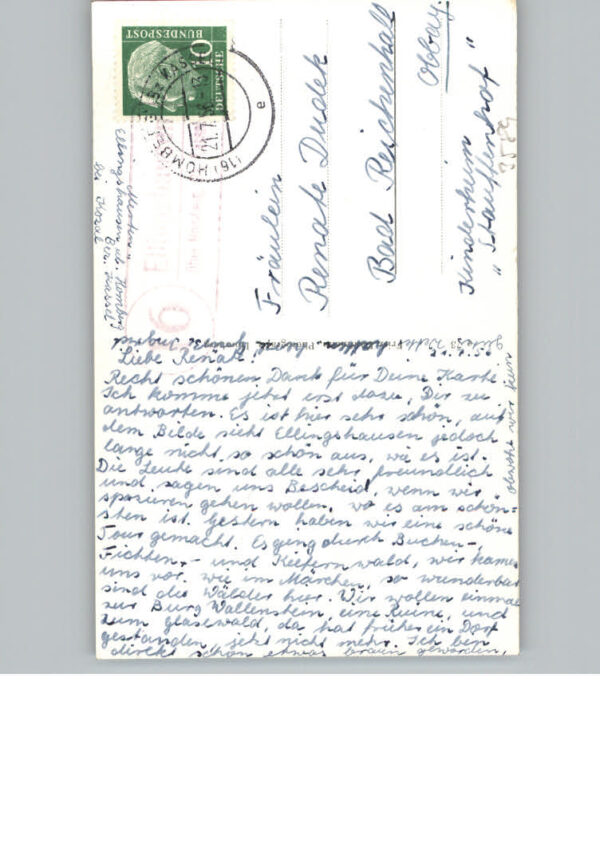 DEUTSCHE
BUNDESPOST
10
(16) HOMBE
21.7.
e
Fräulein
Renate Dudek
Bad Reichenhall
Obbay.
Kinderheim
"Stauffenhof"
3589
Ellingshausen üb. Homberg
Bez. Kassel
bei
6
Liebe Renate,
Recht schönen Dank für Deine Karte.
Ich komme jetzt erst dazu, Dir zu
antworten. Es ist hier sehr schön, auf
dem Bilde sieht Ellingshausen jedoch
lange nicht so schön aus, wie es ist.
Die Leute sind alle sehr freundlich
und sagen uns Bescheid, wenn wir
spazieren gehen wollen, wo es am schön=
sten ist. Gestern haben wir eine schöne
Tour gemacht. Es ging durch Buchen-
Fichten- und Kiefernwald, wir kamen
uns vor, wie im Märchen, so wunderbar
sind die Wälder hier. Wir wollen einmal
zur Burg Wallenstein eine Ruine, und
zum glasewald, da hat früher ein Dorf
gestanden, jetzt nicht mehr. Ich bin
direkt schon etwas braun geworden,
obwohl wir kein